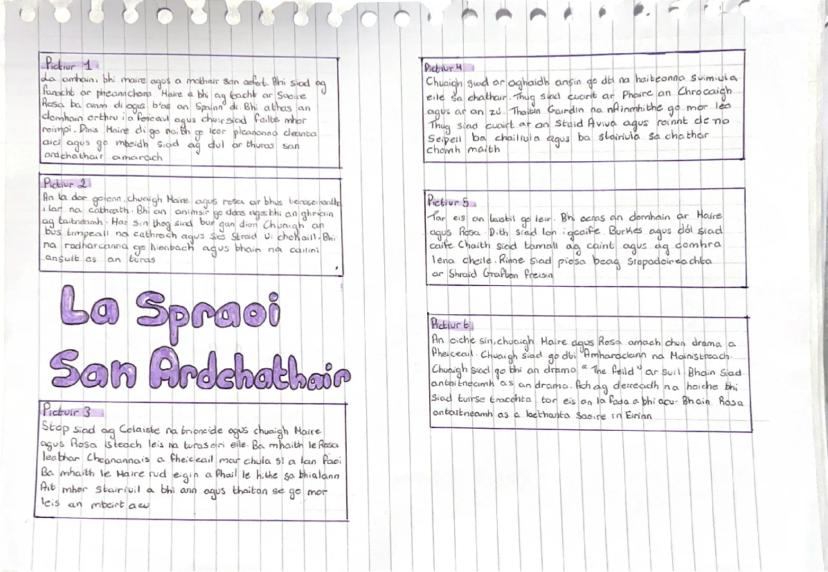 Pictiur 1
La amhain, bhi maire agus a mathair san aefort. Bhi siad ag
fanacht ar pheannchara Maire a bhi ag teacht ar Saoire
Rosa ba ainm di agus b'as an Spainn di. Bhi athas an
domhain orthu i a feiceail agus chuir siad failte mhor
roimpi. Duirt Maire di go raibh go leor pleananna deanta
aici agus go mbeidh siad ag dul ar thuras san
ardchathair amarach
Pictiur 2
An la dar gcionn, chuaigh Maire agus rosa ar bhus
i lar na cathrach. Bhi an aimsir go deas agus bhi an ghrian
ag taitneamh. Mar sin thog siad bus gan dion Chuaigh an
bus timpeall na cathrach agus sios Straid Ui chonaill. Bhi
na radharcanna go hiontach agus bhain na cailini
an sult as an turas
La Spraoi
San Ardchathair
Pictiuir 3
Stop siad ag Colaiste na trionoide agus chuaigh Maire
agus Rosa isteach leis na turasoiri eile. Ba mhaith le Rosa
leabhar Cheanannais a fheiceail mar chula si a lan faoi
Ba mhaith le Maire rud eigin a fhail le hithe sa bhialann
Ait mhor stairiuil a bhi ann agus thaitin se go mor
leis an mbeirt acu
Pictiur 4
Chuaigh siad ar aghaidh ansin go dti na haiteanna suimiula
eile sa chathair. Thug siad cuairt ar Phairc an Chrocaigh
agus ar an zu. Thaitin Gairdin na nAinmhithe go mor leo
Thug siad cuairt ar an Staid Aviva agus roinnt de na
Seipeil ba chailiula agus ba stairiula sa chathair
chomh maith
Pictiur 5
Tar eis an taistil go leir. Bhi ocras an domhain ar Maire
agus Rosa. D.ith siad lon i gcaife Burkes agus dol siad
caife Chaith siad tamall ag caint agus ag comhra
lena cheile. Rinne siad piosa beag siopadoireachta
ar Shraid Grafton freisin
Pictiur 6
An oiche sin, chuaigh Maire agus Rosa amach chun drama a
fheiceail. Chuaigh siad go dti Amharaclann na Mainistreach
Chuaigh siad go bhi an drama "The Feild" ar suil. Bhain siad
antaitneamh as an drama. Ach ag deireadh na hoiche bhi
siad tuirse traochta tar eis an la fada a bhi acu. Bhain Rosa
antaitneamh as a laethanta Saoire in Eirinn